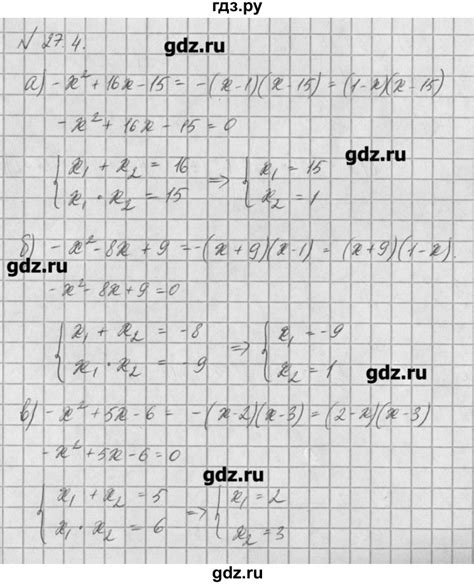 гдз.ру
№ 27.4.
gdz.ru
а) -x² + 16x - 15 = -(x-1)(x-15) = (1-x)(x-15)
-x² + 16x - 15 = 0
gdz.ru
{ x₁ + x₂ = 16
x₁ · x₂ = 15 ⇒ { x₁ = 15
x₂ = 1
gdz.ru
б) -x² - 8x + 9 = -(x+9)(x-1) = (x+9)(1-x).
gdz.ru
-x² - 8x + 9 = 0
{ x₁ + x₂ = -8
x₁ · x₂ = -9 ⇒ { x₁ = -9
x₂ = 1
gdz.ru
в) -x² + 5x - 6 = -(x-2)(x-3) = (2-x)(x-3)
-x² + 5x - 6 = 0
gdz.ru
{ x₁ + x₂ = 5
x₁ · x₂ = 6 ⇒ { x₁ = 2
x₂ = 3
gdz.ru